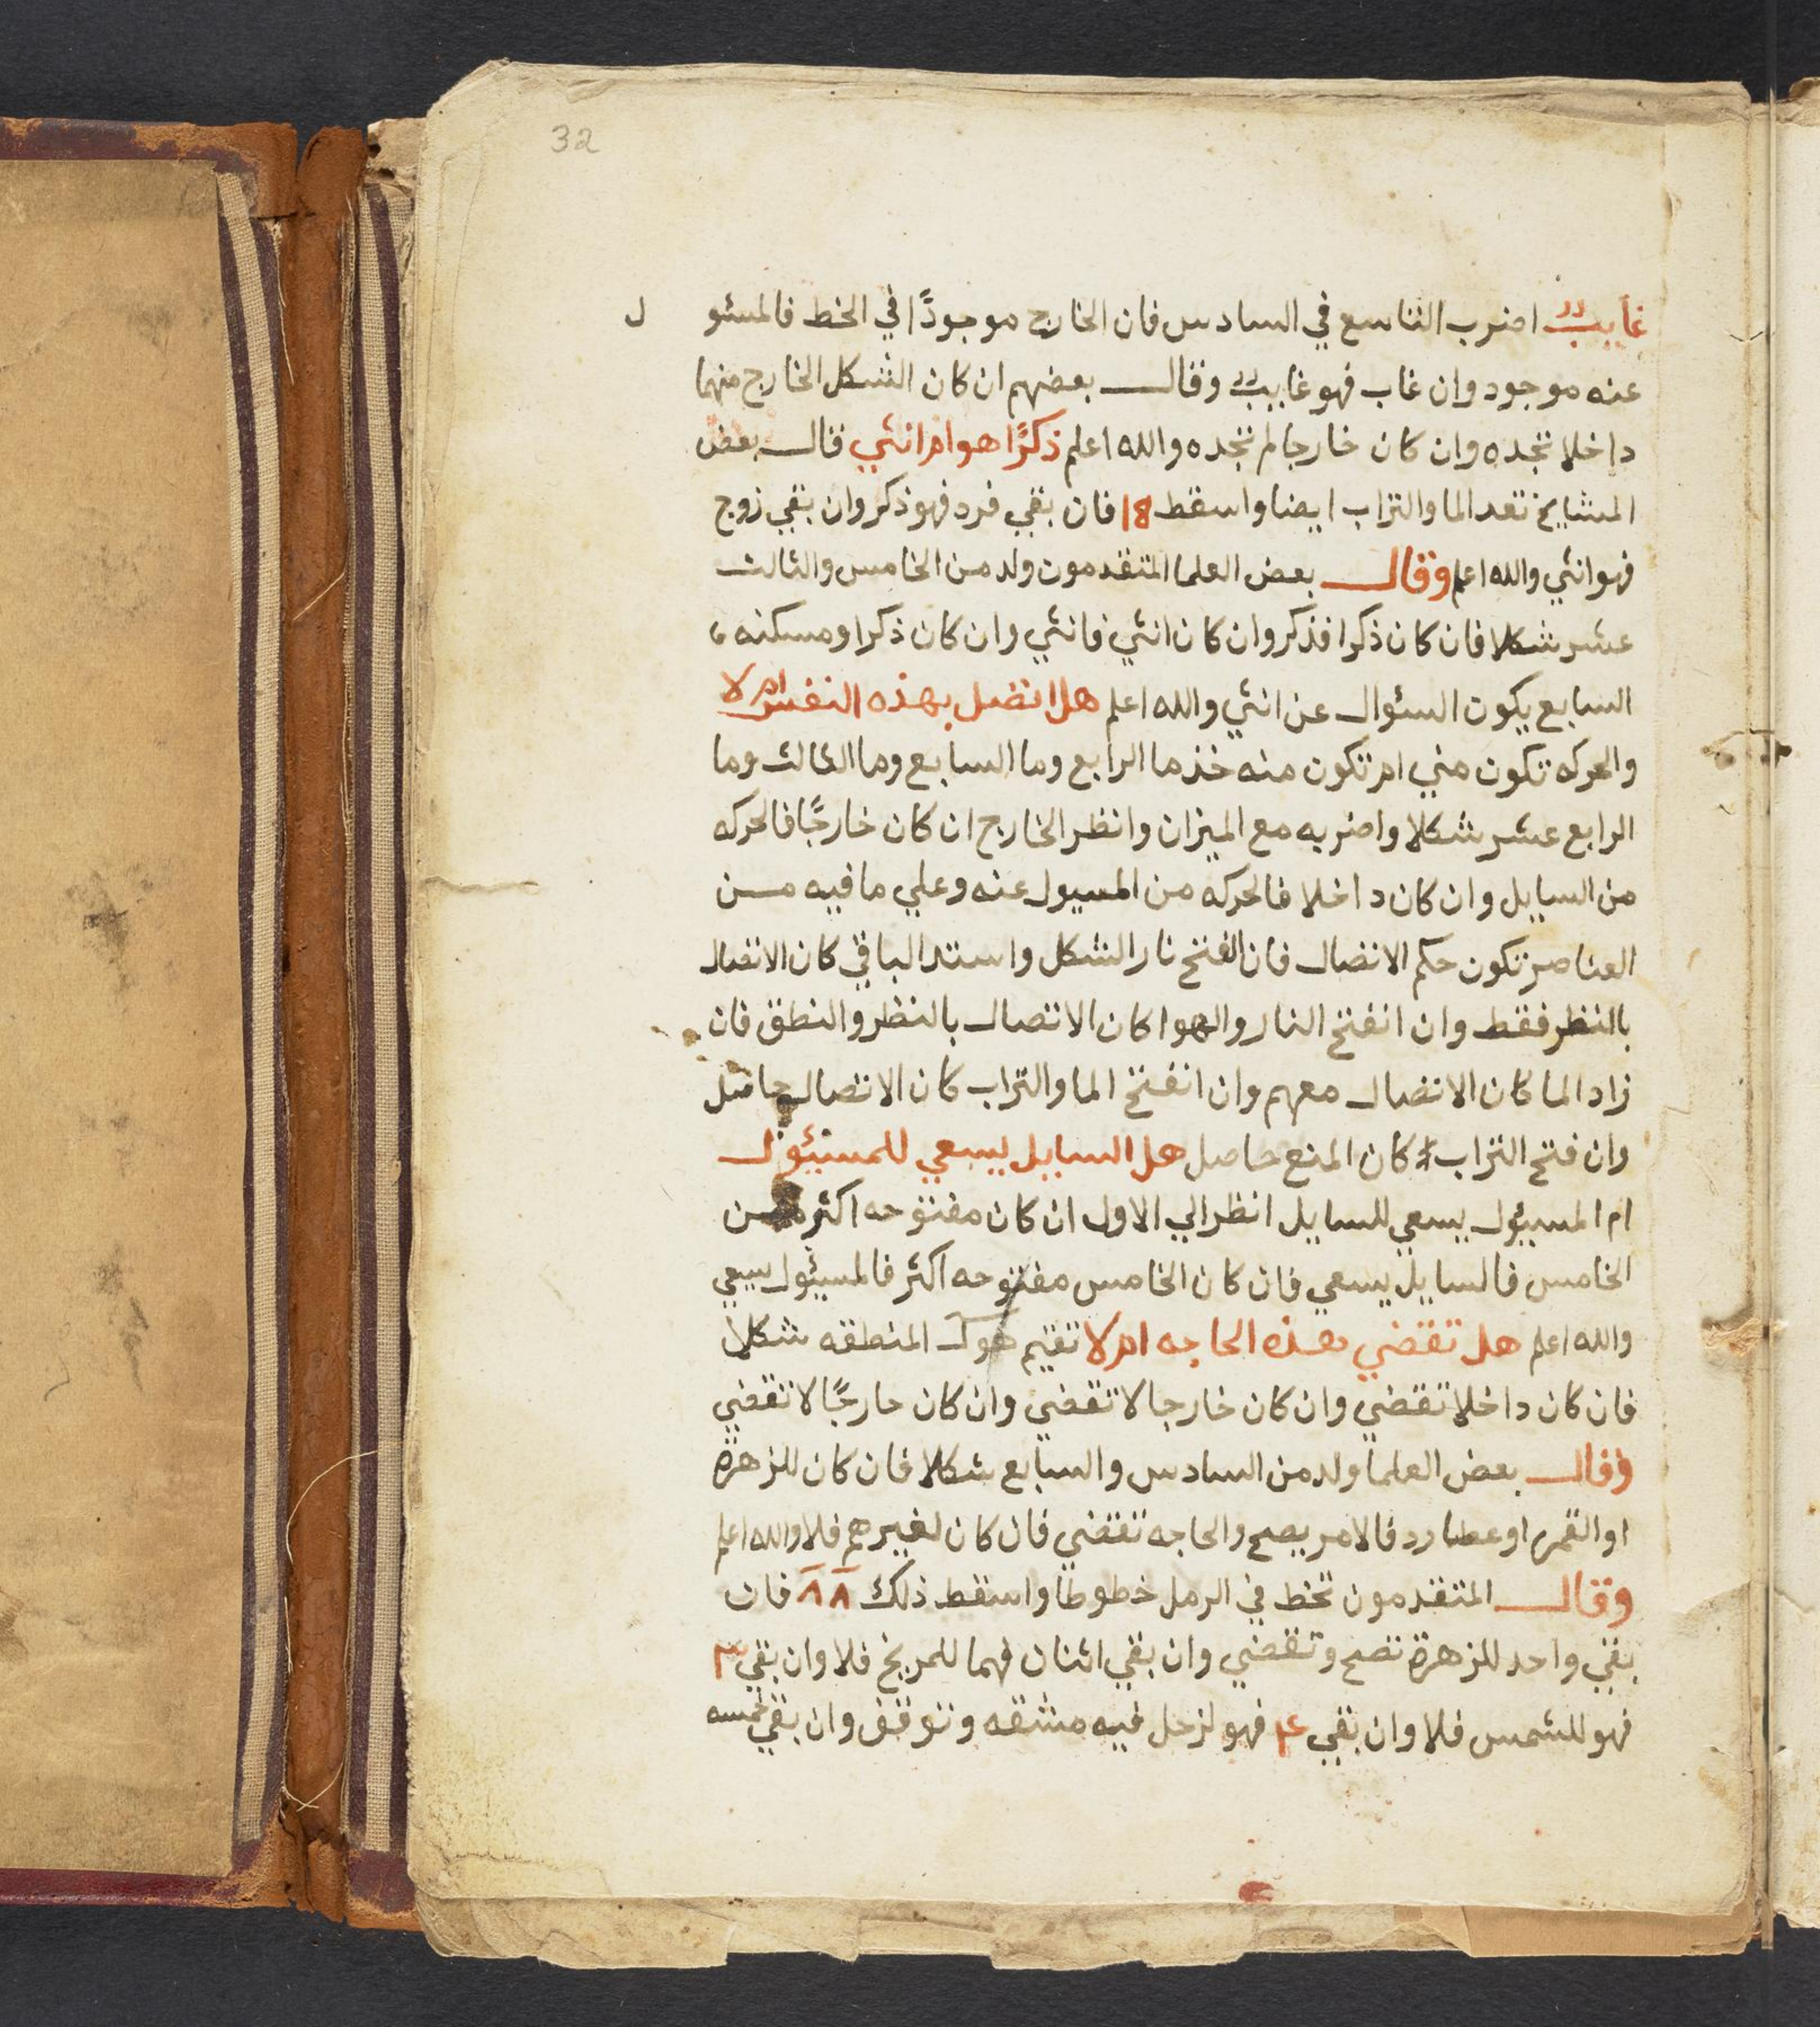 32
غايب اضرب التاسع في السادس فان الخارج موجودًا في الخط فالمسئو ل
عنه موجود وان غاب فهو غايب وقال بعضهم ان كان الشكل الخارج منهما
داخلا تجده وان كان خارجا لم تجده والله اعلم ذكرًا هو ام انثي قال بعض
المشايخ تعد الما والتراب ايضا واسقط 18 فان بقي فرد فهو ذكر وان بقي زوج
فهو انثي والله اعلم وقال بعض العلما المتقدمون ولد من الخامس والثالث
عشر شكلا فان كان ذكرا فذكر وان كان انثي فانثي وان كان ذكرا ومسكنه
السابع يكون السئوال عن انثي والله اعلم هل اتصل بهذه النفس ام لا
والحركه تكون مني ام تكون منه خذ ما الرابع وما السابع وما الثالث وما
الرابع عشر شكلا واضربه مع الميزان وانظر الخارج ان كان خارجًا فالحركه
من السايل وان كان داخلا فالحركه من المسيول عنه وعلي ما فيه من
العناصر تكون حكم الاتصال فان انفتح نار الشكل واستد الباقي كان الاتصال
بالنظر فقط وان انفتح النار والهوا كان الاتصال بالنظر والنطق فان
زاد الما كان الاتصال معهم وان انفتح الما والتراب كان الاتصال حاصل
وان فتح التراب كان المنع حاصل هل السايل يسعي للمسئول
ام المسيئول يسعي للسايل انظر الي الاول ان كان مفتوحه اكثر من
الخامس فالسايل يسعي فان كان الخامس مفتوحه اكثر فالمسيئول يسعي
والله اعلم هل تقضي هذه الحاجه ام لا تقيم المنطقه شكلا
فان كان داخلا تقضي وان كان خارجا لا تقضي وان كان خارجًا لا تقضي
وقال بعض العلما ولد من السادس والسابع شكلا فان كان للزهرة
او القمر او عطارد فالامر يصح والحاجه تقضي فان كان لغيرهم فلا والله اعلم
وقال المتقدمون تخط في الرمل خطوطا واسقط ذلك ٨٨ فان
بقي واحد للزهرة تصح وتقضي وان بقي اثنان فهما للمريخ فلا وان بقي ٣
فهو للشمس فلا وان بقي ٤ فهو لزحل فيه مشقه وتوقف وان بقي خمسه